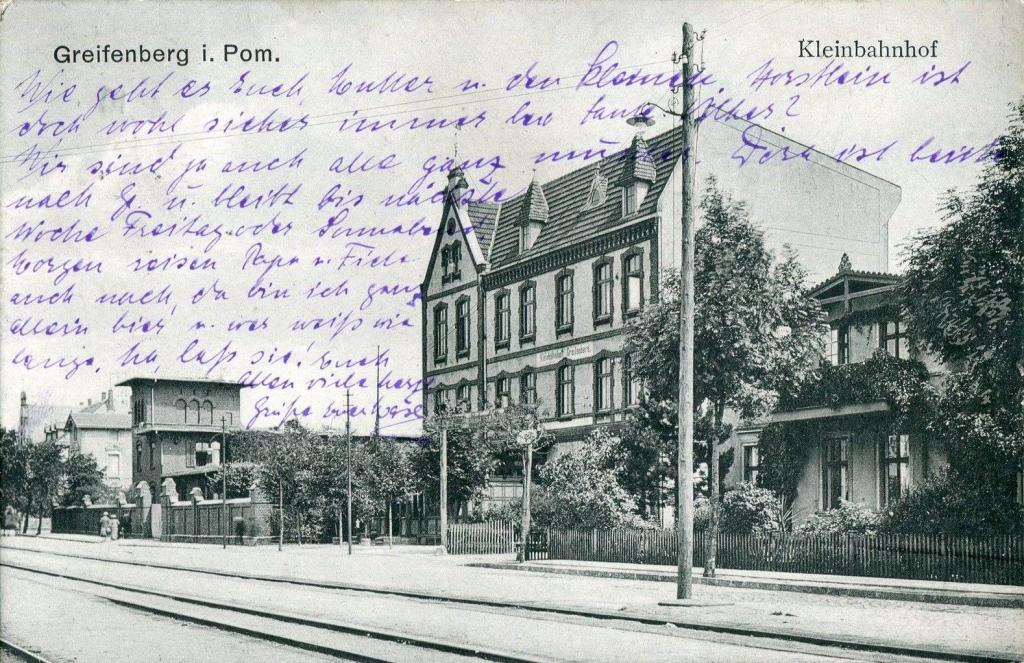 Greifenberg i. Pom.
Kleinbahnhof
Wie geht es Euch, Mutter u. den kleinen. Horstlein ist
doch wohl sicher immer bei Tante
Wir sind ja auch alle ganz Dora ist heute
nach u. bleibt bis nächste
Woche Freitag oder Sonnabend
Morgen reisen Papa u.
auch nach, da bin ich ganz
allein hier u. wer weiß wie
lange, na, laß sie! Euch
Allen viele herzl.
Grüße